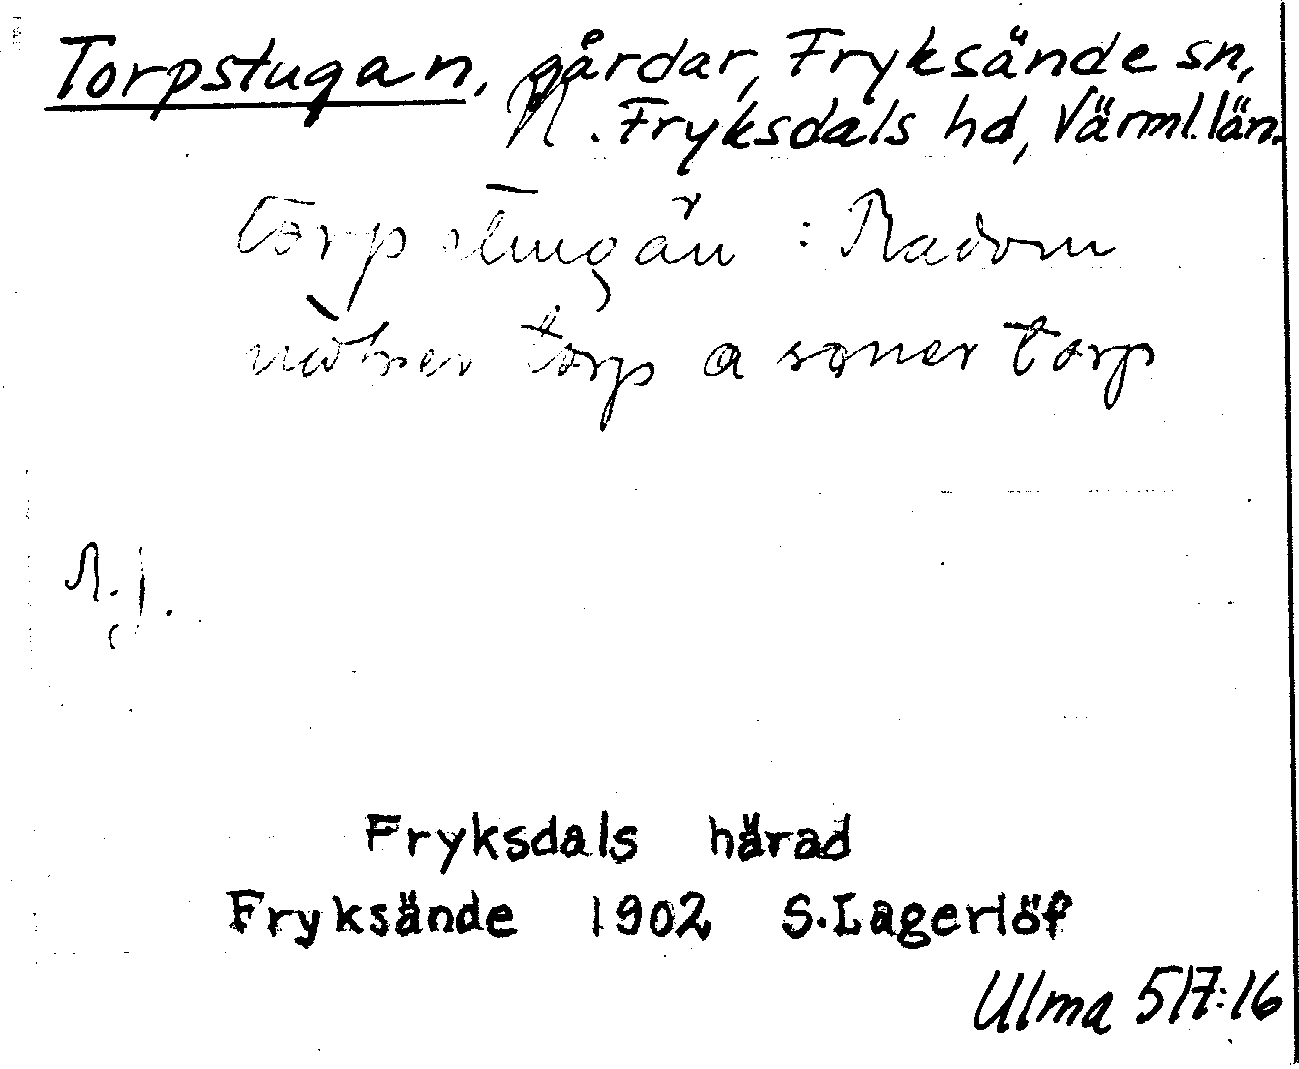 Torpstugan, gårdar, Fryksände sn,
N. Fryksdals hd, Värml. län.
torpstugän : Radom
torp a soner torp
N. J.
Fryksdals härad
Fryksände 1902 S. Lagerlöf
Ulma 517:16